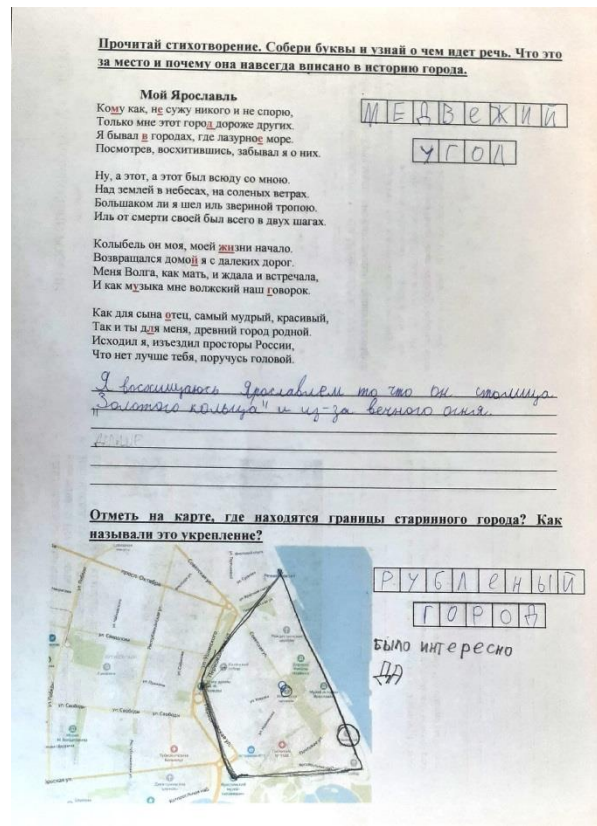 Прочитай стихотворение. Собери буквы и узнай о чем идет речь. Что это
за место и почему она навсегда вписано в историю города.
Мой Ярославль
Кому как, не сужу никого и не спорю,
Только мне этот город дороже других.
Я бывал в городах, где лазурное море.
Посмотрев, восхитившись, забывал я о них.
МЕДВЕЖИЙ
УГОЛ
Ну, а этот, а этот был всюду со мною.
Над землей в небесах, на соленых ветрах.
Большаком ли я шел иль звериной тропою.
Иль от смерти своей был всего в двух шагах.
Колыбель он моя, моей жизни начало.
Возвращался домой я с далеких дорог.
Меня Волга, как мать, и ждала и встречала,
И как музыка мне волжский наш говорок.
Как для сына отец, самый мудрый, красивый,
Так и ты для меня, древний город родной.
Исходил я, изъездил просторы России,
Что нет лучше тебя, поручусь головой.
Я восхищаюсь Ярославлем то что он столица
"Золотого кольца" и из-за вечного огня.
Отметь на карте, где находятся границы старинного города? Как
называли это укрепление?
РУБЛЕНЫЙ
ГОРОД
БЫЛО ИНТЕРЕСНО
ДА
ул Свободы
ул Свободы